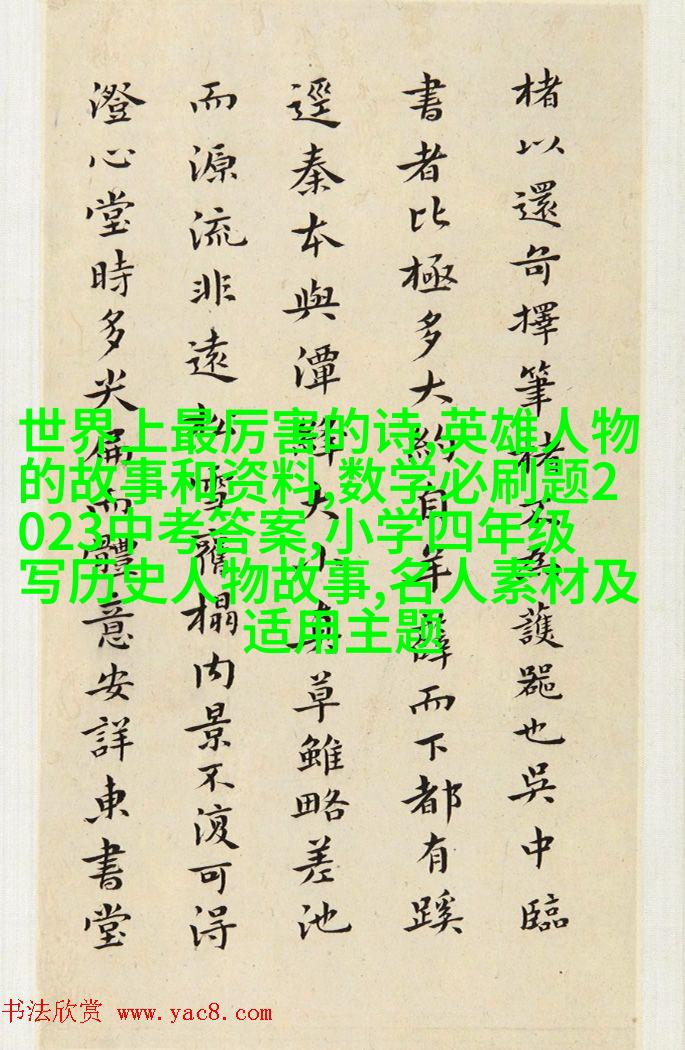 楮以還奇擇筆楮不為護器也吳中臨
書者比極多大約自年薛而下都有蹊
逕秦本與潭絳大小真草雖略差池
而源流非遠訟雪舊榻內景不復可得
澄心堂時多尖扁而體意安詳東書堂
世界上最厉害的诗,英雄人物
的故事和资料,数学必刷题2
023中考答案,小学四年级
写历史人物故事,名人素材及
适用主题
书法欣赏 www.yac8.com